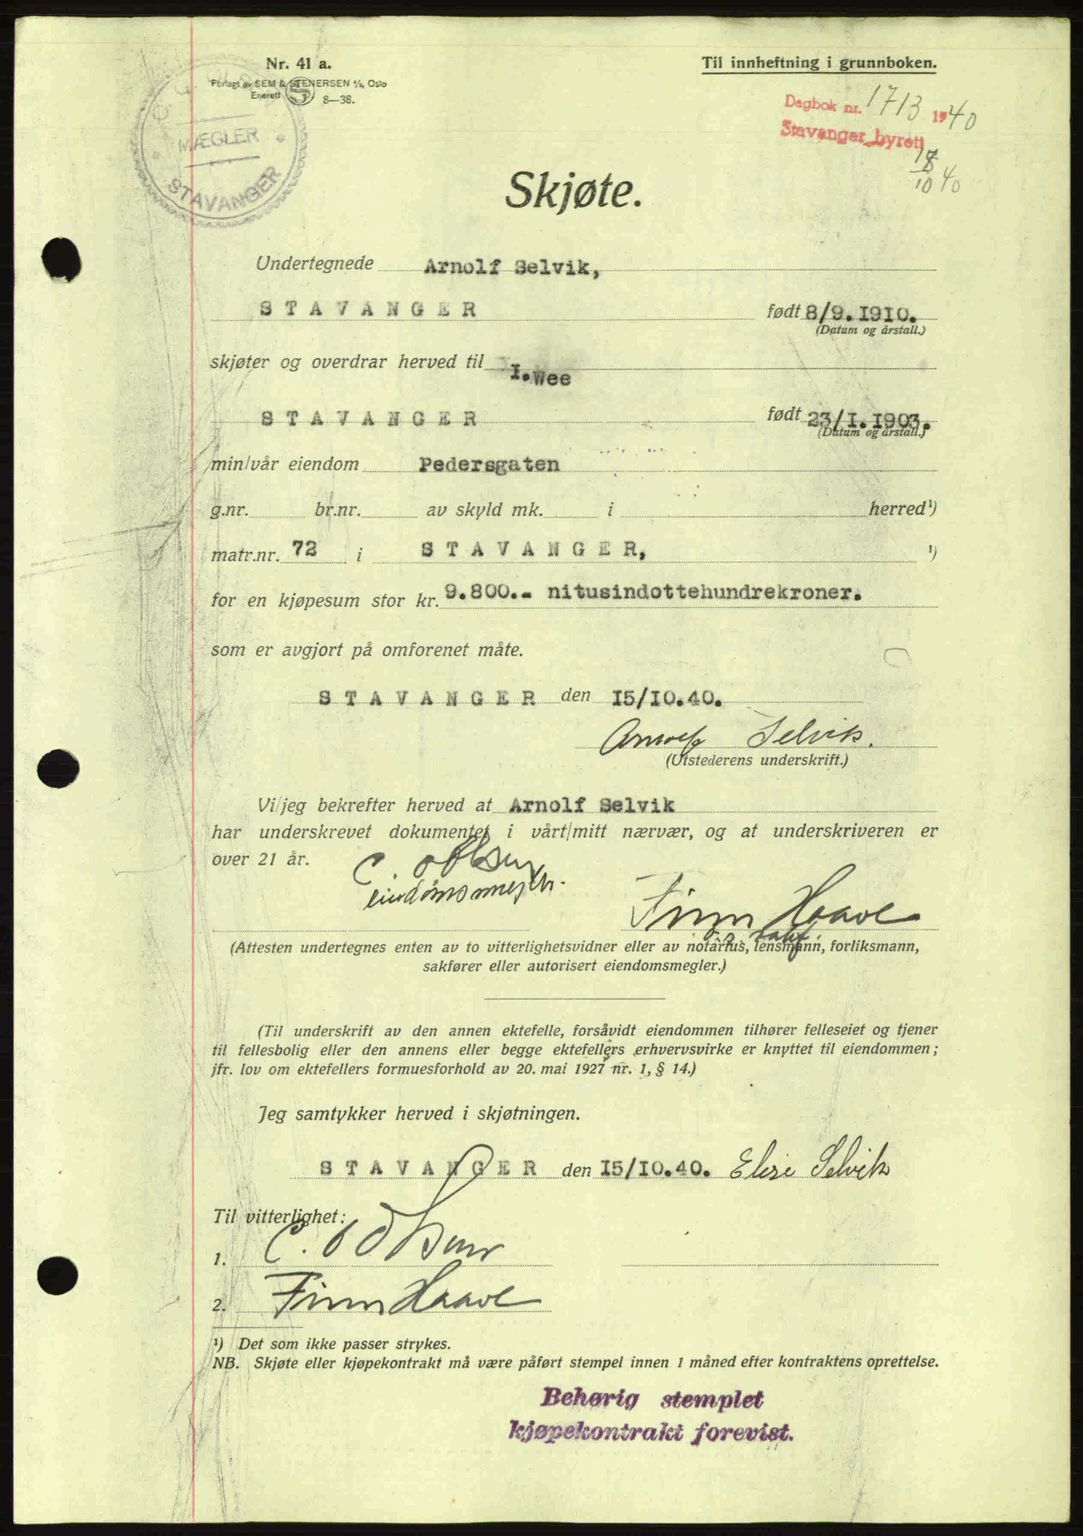 Nr. 41 a.
Forlagt av SEM & STENERSEN A/S, Oslo
Enerett 8—38.
Til innheftning i grunnboken.
MÆGLER
STAVANGER
Dagbok nr. 1713 1940
Stavanger byrett
18/10 40
Skjøte.
Undertegnede Arnolf Selvik,
STAVANGER født 8/9.1910.
(Datum og årstall.)
skjøter og overdrar herved til I. Wee
STAVANGER født 23/I.1903.
(Datum og årstall.)
min/vår eiendom Pedersgaten
g.nr. br.nr. av skyld mk. i herred¹)
matr.nr. 72 i STAVANGER, ¹)
for en kjøpesum stor kr. 9.800.- nitusindottehundrekroner.
som er avgjort på omforenet måte.
STAVANGER den 15/10.40.
Arnolf Selvik.
(Utstederens underskrift.)
Vi/jeg bekrefter herved at Arnolf Selvik
har underskrevet dokumentet i vårt/mitt nærvær, og at underskriveren er
over 21 år.
eiendomsmegler.
Finn Haave
(Attesten undertegnes enten av to vitterlighetsvidner eller av notarius, lensmann, forliksmann,
sakfører eller autorisert eiendomsmegler.)
(Til underskrift av den annen ektefelle, forsåvidt eiendommen tilhører felleseiet og tjener
til fellesbolig eller den annens eller begge ektefellers erhvervsvirke er knyttet til eiendommen;
jfr. lov om ektefellers formuesforhold av 20. mai 1927 nr. 1, § 14.)
Jeg samtykker herved i skjøtningen.
STAVANGER den 15/10.40. Elise Selvik
Til vitterlighet:
1. C.
2. Finn Haave
¹) Det som ikke passer strykes.
NB. Skjøte eller kjøpekontrakt må være påført stempel innen 1 måned efter kontraktens oprettelse.
Behørig stemplet
kjøpekontrakt forevist.